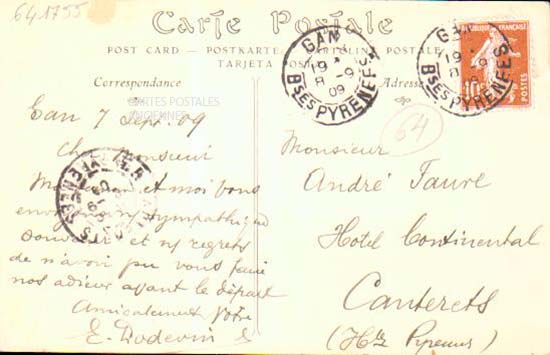 641755
Carte Postale
POST CARD — POSTKARTE — CARTOLINA POSTALE
TARJETA POSTAL
Correspondance
Adresse
CARTES POSTALES
ANCIENNES
GAN
19 *
8 - 9
09
BSES PYRENEES
GAN
19 *
8 - 9
BSES PYRENEES
REPUBLIQUE FRANÇAISE
10
POSTES
64
Gan 7 Sept. 09
Cher Monsieur
et moi vous
sympathique
souvenir et ns regrets
de n'avoir pu vous faire
nos adieux avant le départ
Amicalement Votre
E. Dodevin
PYRENEES
Monsieur
André Faure
Hotel Continental
Cauterets
(Htes Pyrenees)